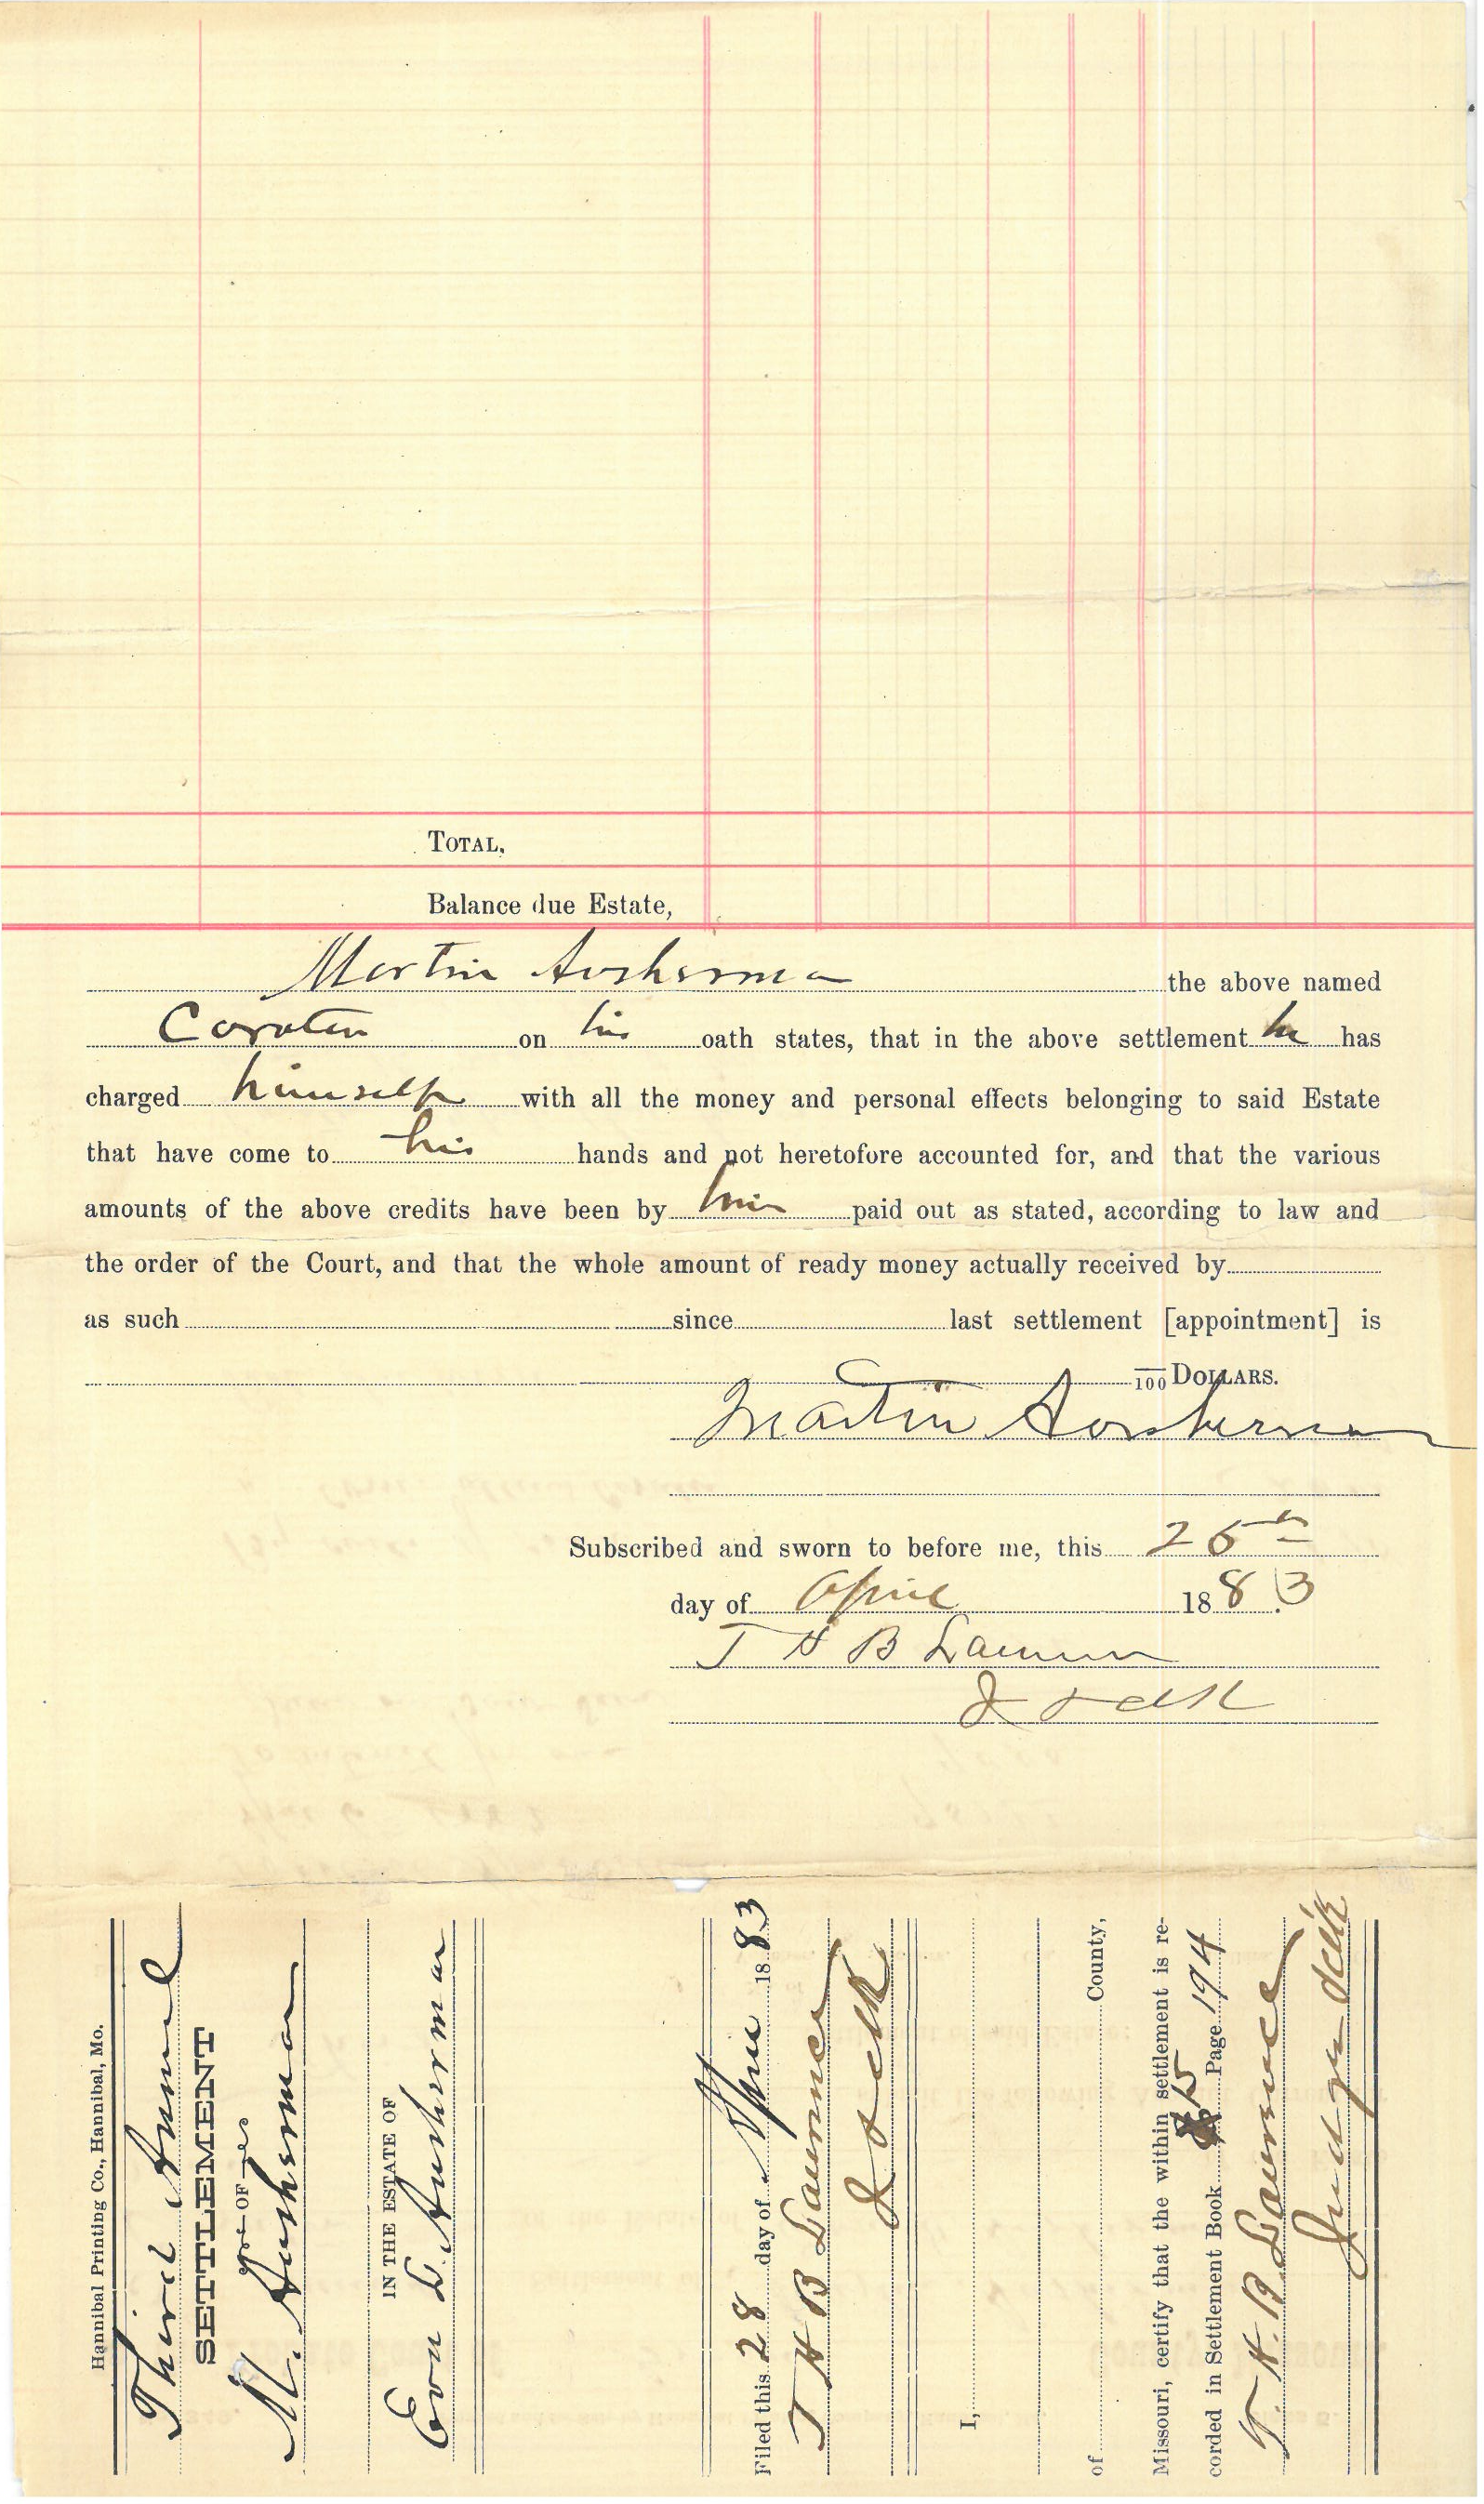 TOTAL.
Balance due Estate,
Martin Ausherman the above named
Curator on his oath states, that in the above settlement he has
charged himself with all the money and personal effects belonging to said Estate
that have come to his hands and not heretofore accounted for, and that the various
amounts of the above credits have been by him paid out as stated, according to law and
the order of the Court, and that the whole amount of ready money actually received by
as such since last settlement [appointment] is
/100 DOLLARS.
Martin Ausherman
Subscribed and sworn to before me, this
day of April 1883
T H B Lawrence
Hannibal Printing Co., Hannibal, Mo.
Third Annual
SETTLEMENT
OF
M. Ausherman
IN THE ESTATE OF
Eva D. Ausherman
Filed this 28 day of Apr 1883
T H B Lawrence
I,
of County,
Missouri, certify that the within settlement is re-
corded in Settlement Book 15 Page 194
T. H. B. Lawrence
Judge &c